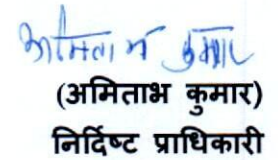 अमिताभ कुमार
(अमिताभ कुमार)
निर्दिष्ट प्राधिकारी